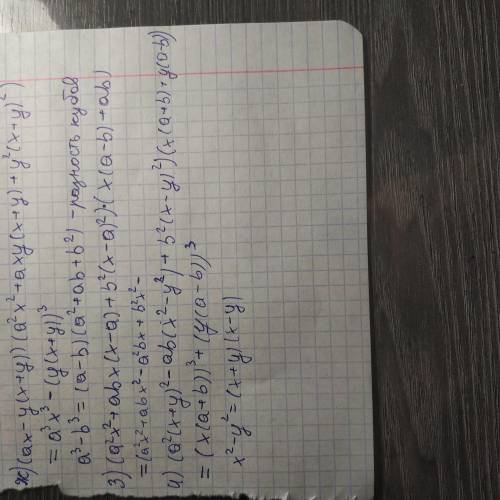 ж) (ax-y(x+y))(a²x²+axy(x+y)+y²(x+y)²)
= a³x³-(y(x+y))³
a³-b³ = (a-b)(a²+ab+b²) - разность кубов
з) (a²x²+abx(x-a)+b²(x-a)²)·(x(a-b)+ab)
=(a²x²+abx²-a²bx+b²x²-
и) (a²(x+y)²-ab(x²-y²)+b²(x-y)²)(x(a+b)+y(a-b))
= (x(a+b))³+(y(a-b))³
x²-y²=(x+y)(x-y)